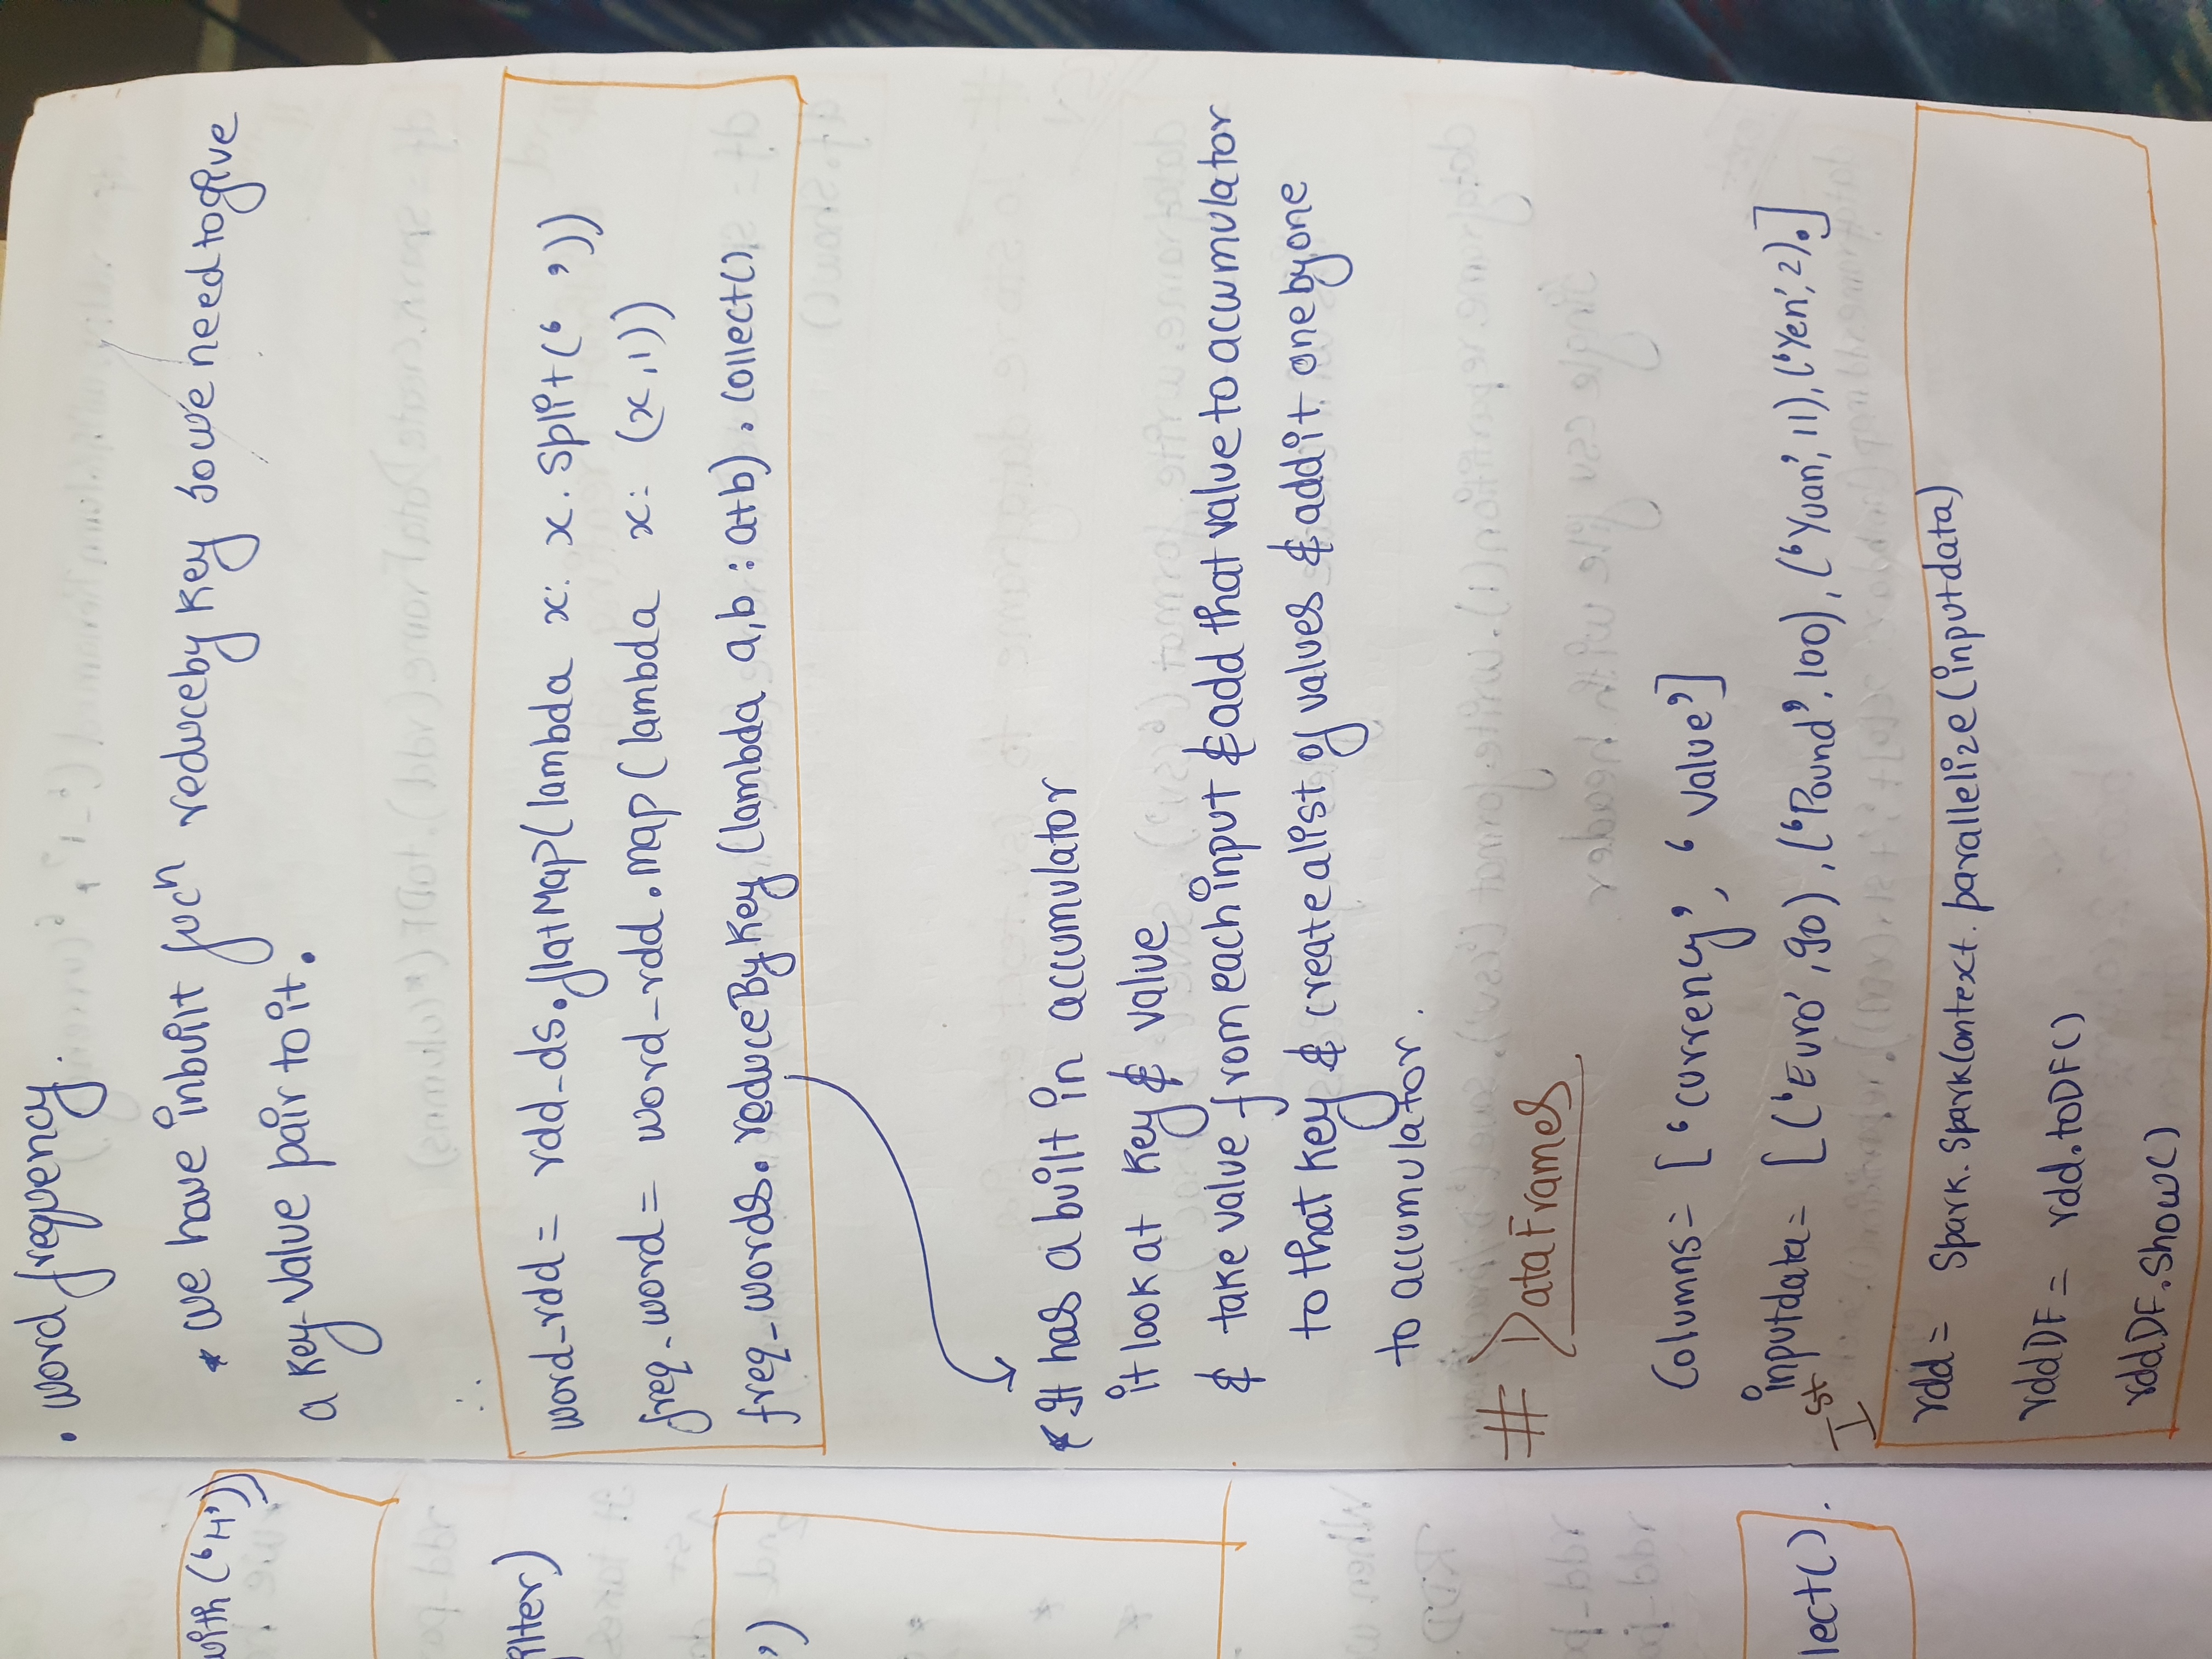 with ('H'))
ilter)
')
lect().
. word frequency.
* we have inbuilt fucn reduceby key so we need to give
a key-value pair to it.
∴
word_rdd = rdd_ds.flatMap(lambda x: x.split(' '))
freq_word = word_rdd.map(lambda x: (x,1))
freq_words.reduceByKey(lambda a,b : a+b).collect()
* It has a built in accumulator
it look at key & value
& take value from each input & add that value to accumulator
to that key & create a list of values & add it one by one
to accumulator.
# DataFrames
Columns = ['currency', 'value']
inputdata = [('Euro',90),('Pound',100),('Yuan',11),('Yen',2).]
Ist
rdd = Spark.SparkContext.parallelize(inputdata)
rddDF = rdd.toDF()
rddDF.show()